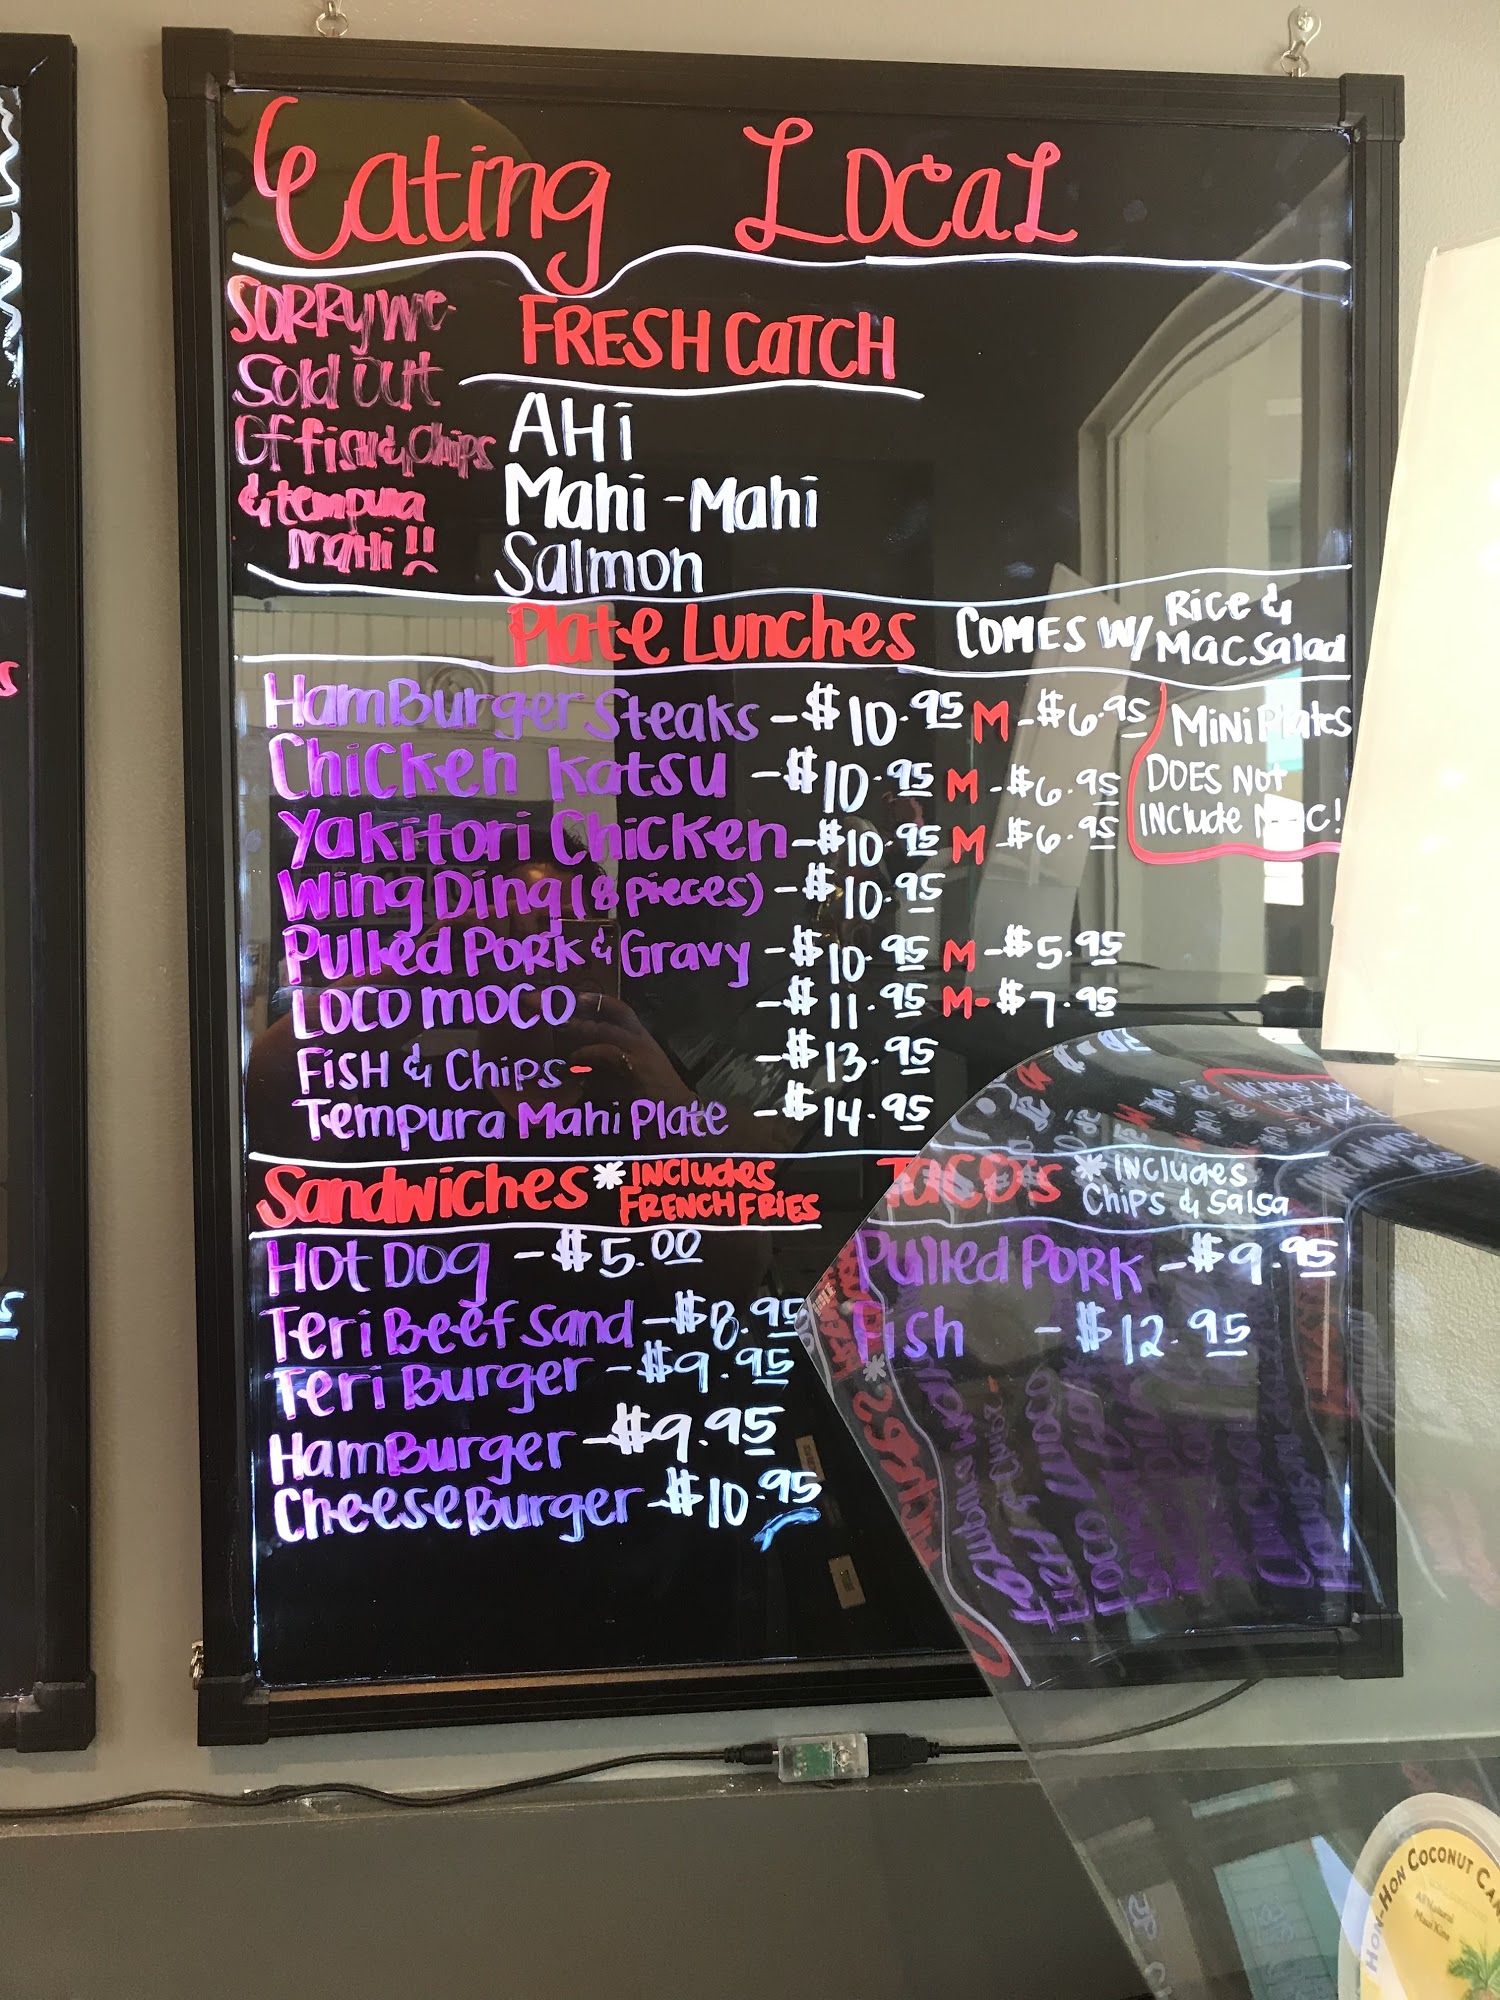 Eating Local
SORRY We
Sold Out
Of fish & Chips
& tempura
MaHi !!
FRESH CaTCH
AHi
Mahi - Mahi
Salmon
Plate Lunches COMES W/ Rice &
Mac Salad
HamBurger Steaks - $10.95 M - $6.95
Chicken Katsu - $10.95 M - $6.95
Yakitori Chicken - $10.95 M - $6.95
Wing Ding (8 pieces) - $10.95
Pulled Pork & Gravy - $10.95 M - $5.95
LOCO MOCO - $11.95 M - $7.95
FisH & Chips - - $13.95
Tempura Mahi Plate - $14.95
Mini Plates
DOES Not
INClude !
Sandwiches * INCludes
FRENCH FRIES
Hot DOG - $5.00
Teri Beef Sand - $8.95
Teri Burger - $9.95
HamBurger - $9.95
CheeseBurger - $10.95
TaCO's * INCludes
Chips & Salsa
Pulled Pork - $9.95
Fish - $12.95
HON-HON COCONUT
All Natural